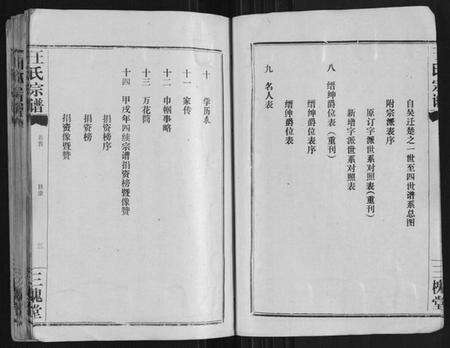 王氏宗谱
三槐堂
自吴迁楚之一世至四世谱系总图
附宗派表序
原订字派世系对照表（重刊）
新增字派世系对照表
八 缙绅爵位表（重刊）
缙绅爵位表序
缙绅爵位表
九 名人表
十 学历表
十一 家传
十二 巾帼事略
十三 万花筒
十四 甲戌年四续宗谱捐资榜暨像赞
捐资榜序
捐资榜
捐资像暨赞
王氏宗谱
三槐堂